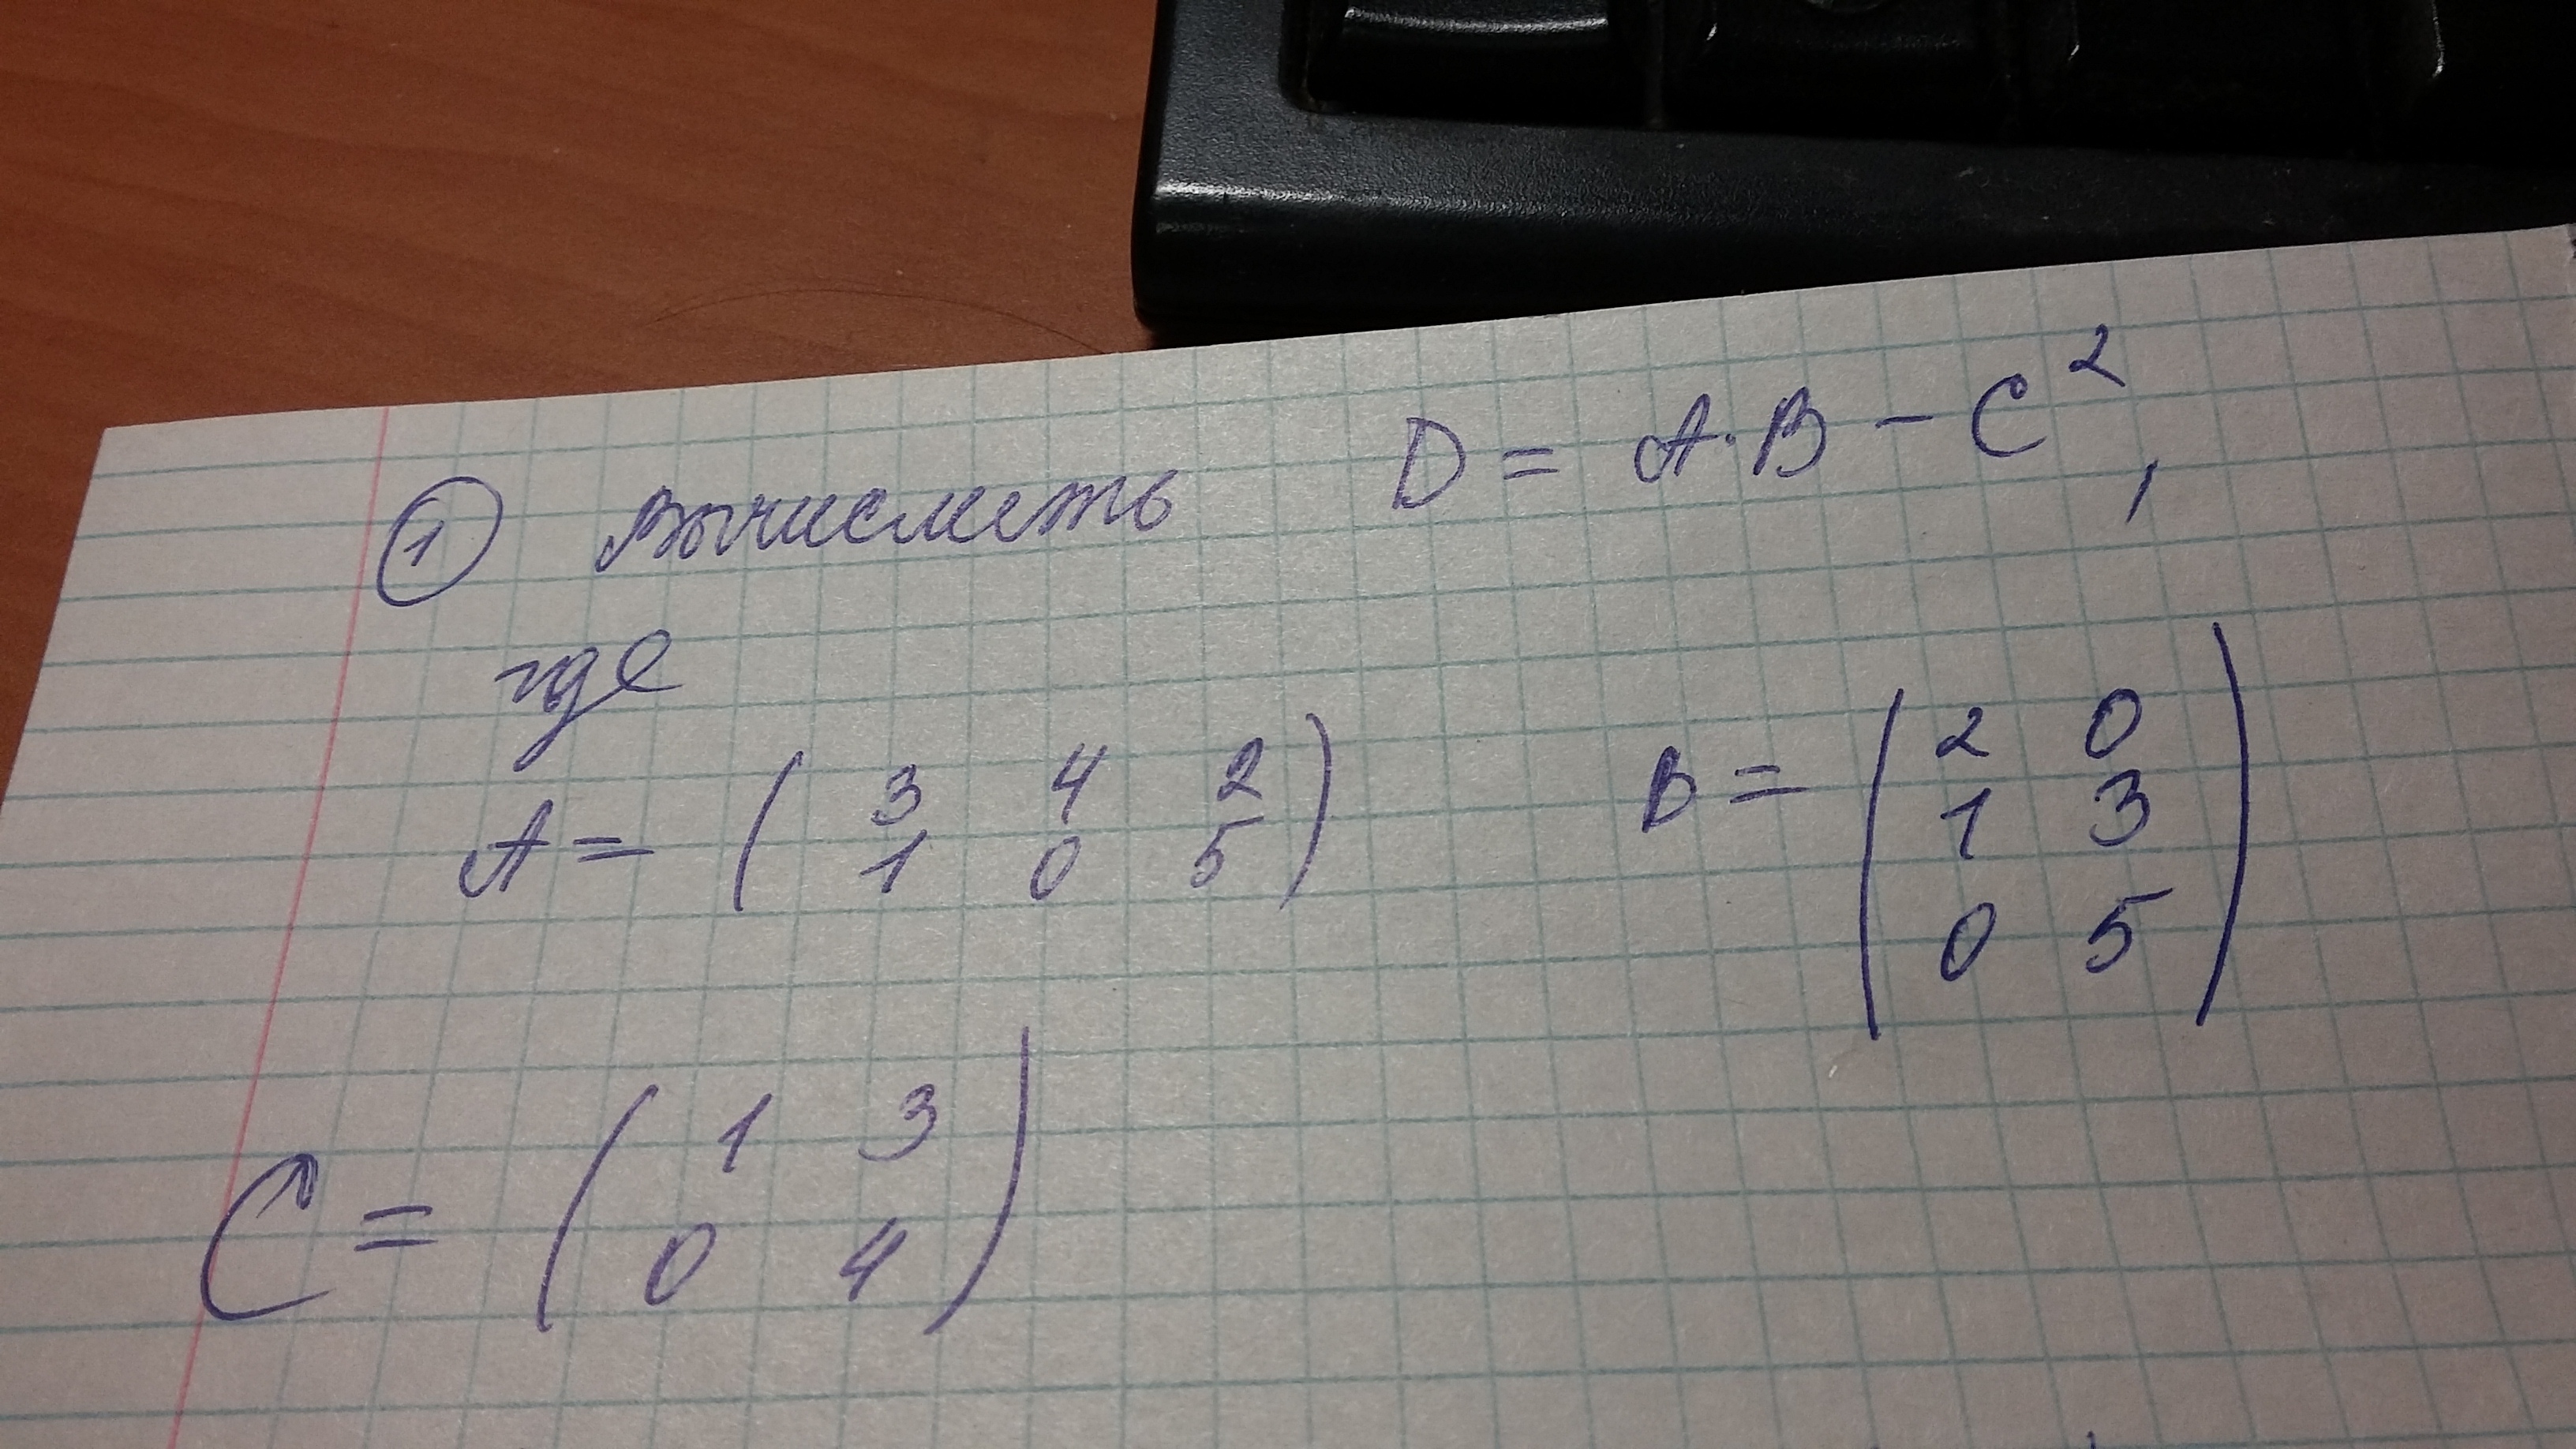 ① Вычислить D = A·B − C²,
где
A = ( 3 4 2 ) B = ( 2 0 )
( 1 0 5 ) ( 1 3 )
( 0 5 )
C = ( 1 3 )
( 0 4 )